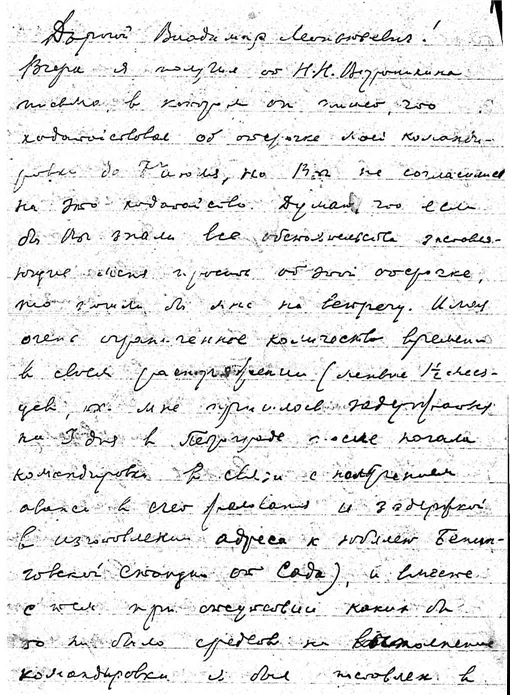 Дорогой Владимир Леонтьевич!
Вчера я получил от Н.Н.
письмо, в котором он пишет, что
ходатайствовал об отсрочке моей команди-
ровки до июля, но Вы не согласились
на это ходатайство. Думаю, что если
бы Вы знали все обстоятельства заставля-
ющие меня просить об этой отсрочке,
то пошли бы мне на встречу. Имея
очень ограниченное количество времени
в своем распоряжении (менее 1½ меся-
цев, т.к. мне пришлось задержаться
на дня в Петрограде после начала
командировки в связи с
аванса в счет и задержкой
в изготовлении адреса к юбилею
станции от Сада), и вместе
с тем при отсутствии каких бы
то ни было средств на выполнение
командировки я был поставлен в